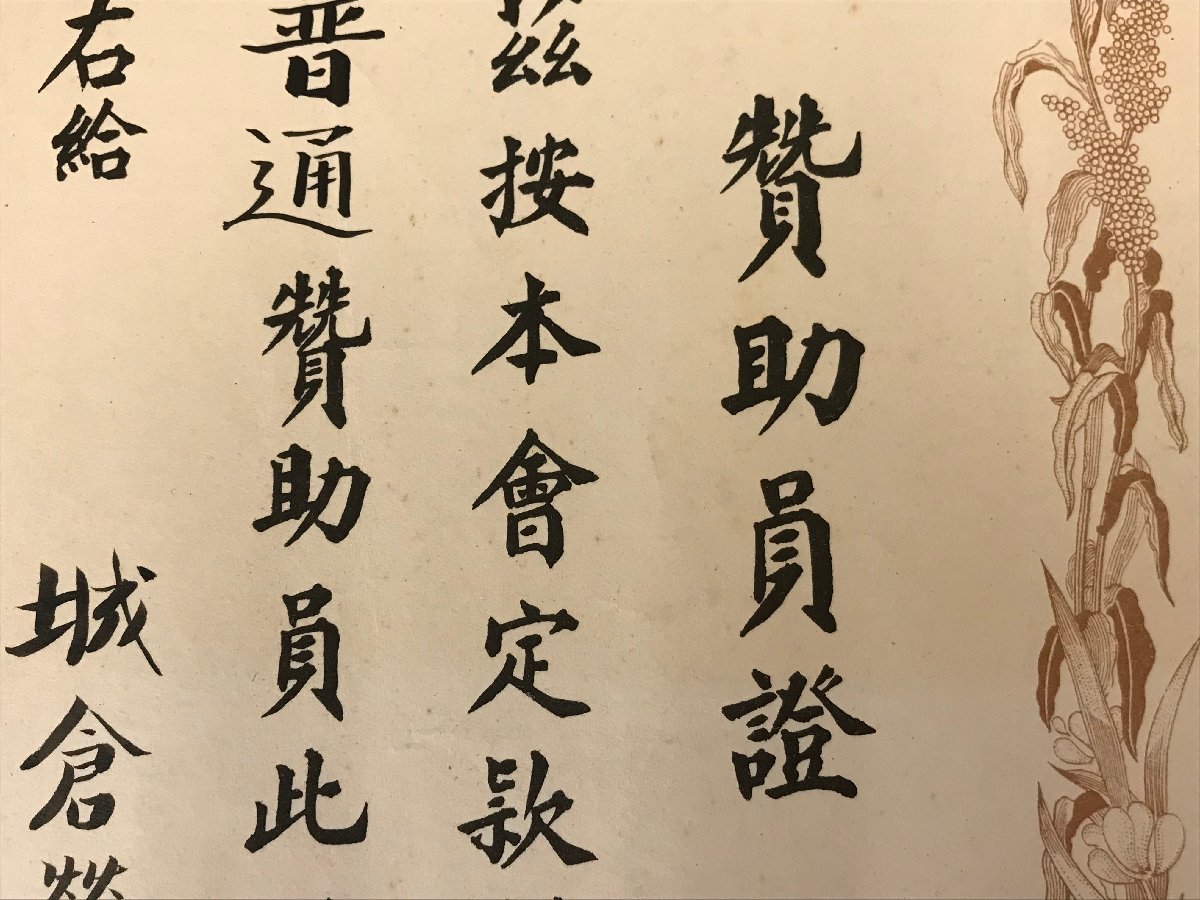 贊助員證
茲按本會定款
普通贊助員此
右給
城倉